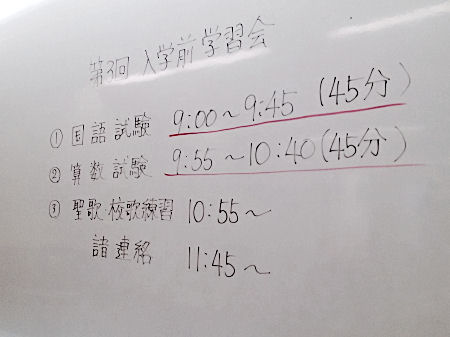 第3回 入学前学習会
① 国語試験 9:00〜9:45 (45分)
② 算数試験 9:55〜10:40(45分)
③ 聖歌・校歌練習 10:55〜
諸連絡 11:45〜